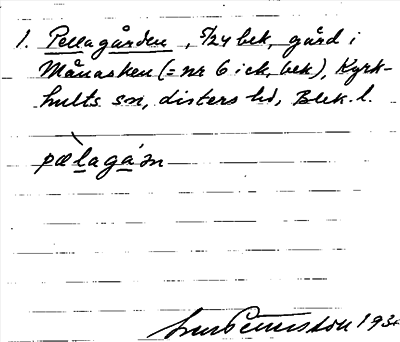 1. Pellagården, 5/24 bek, gård i
Månasken (= nr 6 i ck, bek), Kyrk-
hults sn, Listers hd, Blek. l.
pælagán